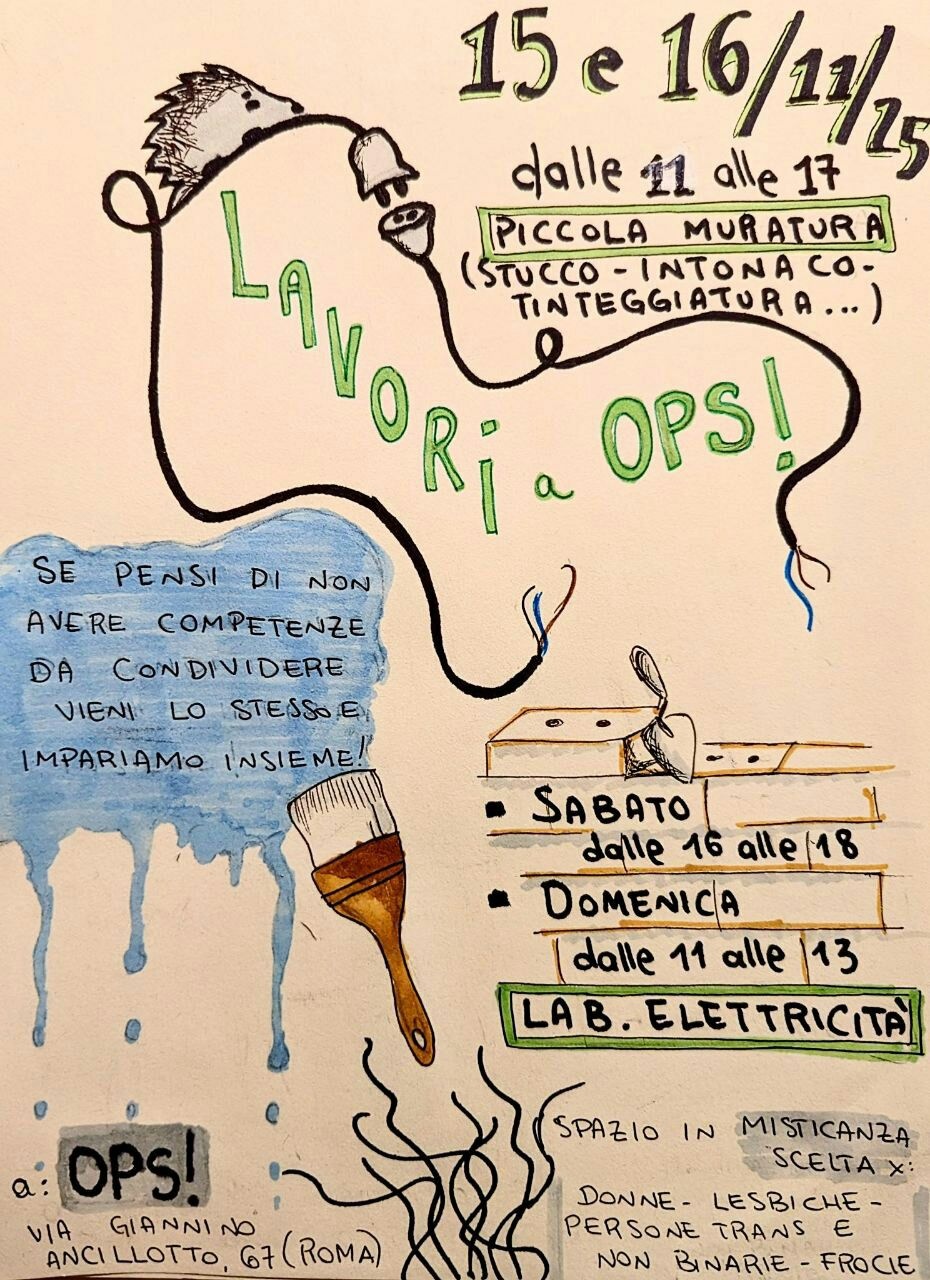 15 e 16/11/25
dalle 11 alle 17
PICCOLA MURATURA
(STUCCO - INTONACO -
TINTEGGIATURA...)
LAVORi a OPS!
SE PENSI DI NON
AVERE COMPETENZE
DA CONDIVIDERE
VIENI LO STESSO E
IMPARIAMO INSIEME!
▪ SABATO
dalle 16 alle 18
▪ DOMENICA
dalle 11 alle 13
LAB. ELETTRICITÀ
a: OPS!
VIA GIANNINO
ANCILLOTTO, 67 (ROMA)
SPAZIO IN MISTICANZA
SCELTA x:
DONNE - LESBICHE -
PERSONE TRANS E
NON BINARIE - FROCIE